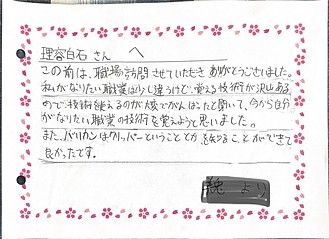 理容白石さんへ
この前は、職場訪問させていただきありがとうございました。
私がなりたい職業は少し違うけど、覚える技術が沢山ある
ので技術覚えるのが大変でがんばったと聞いて、今から自分
がなりたい職業の技術を覚えようと思いました。
また、バリカンはクリッパーということとか知ることができて
良かったです。
より